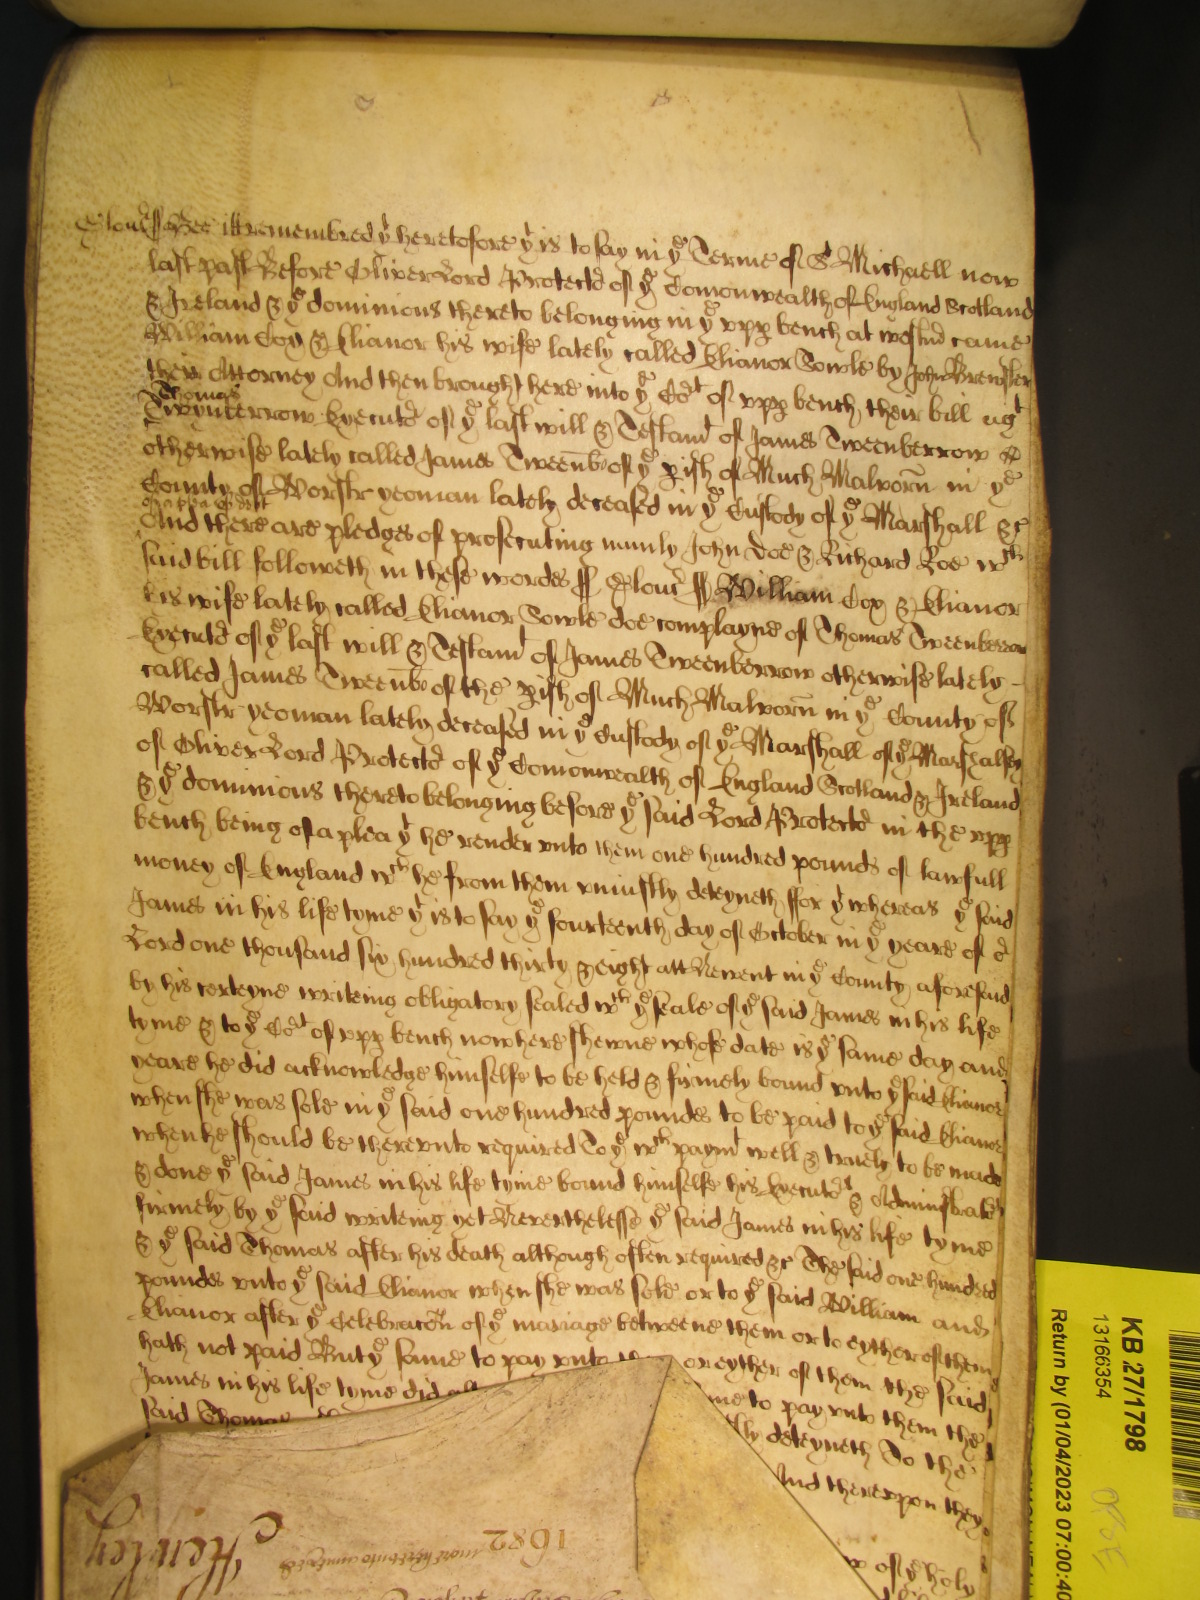 Glouc ss Bee itt remembred yt heretofore yt is to say in ye Terme of St Michaell now
last past Before Oliver Lord Protectr of ye Comonwealth of England Scotland
& Ireland & ye dominions thereto belonging in ye upp bench at westmr came
William Cox & Elianor his wife lately called Elianor Sowle by John Brewster
their Attorney And then brought here into ye Cort of upp bench their bill agt
Thomas
Twynberrow Executr of ye last will & Testamt of James Tweenberrow
otherwise lately called James Tweenb of ye pish of Much Malvorn in ye
County of Worstr yeoman lately deceased in ye Custody of ye Marshall &c
And there are pledges of prosecuting namly John Doe & Richard Roe wch
said bill followeth in these wordes ss Glouc ss William Cox & Elianor
his wife lately called Elianor Sowle doe complayne of Thomas Tweenberrow
Executr of ye last will & Testamt of James Tweenberrow otherwise lately
called James Tweenb of the pish of Much Malvorn in ye County of
Worstr yeoman lately deceased in ye Custody of ye Marshall of ye Marshalsey
of Oliver Lord Protectr of ye Comonwealth of England Scotland & Ireland
& ye dominions thereto belonging before ye said Lord Protectr in the upp
bench being of a plea yt he render unto them one hundred pounds of lawfull
money of England wch he from them uniustly deteyneth ffor yt whereas ye said
James in his life tyme yt is to say ye fourteenth day of October in ye yeare of or
Lord one thousand six hundred thirty & eight att Newent in ye County aforesaid
by his certeyne writeing obligatory sealed wth ye seale of ye said James in his life
tyme & to ye Cort of upp bench now here shewne whose date is ye same day and
yeare he did acknowledge himselfe to be held & firmely bound unto ye said Elianor
when she was sole in ye said one hundred poundes to be paid to ye said Elianor
when he should be thereunto required To ye wch paymt well & truely to be made
& done ye said James in his life tyme bound himselfe his Executrs & Administratrs
firmely by ye said writeing yet Neverthelesse ye said James in his life tyme
& ye said Thomas after his death although often required &c The said one hundred
poundes unto ye said Elianor when she was sole or to ye said William and
Elianor after ye Celebracon of ye mariage betweene them or to eyther of them
hath not paid But ye same to pay unto or eyther of them the said
James in his life tyme did to pay unto them the
said Thomas deteyneth To the
And thereupon they
of ye holy
1682
KB 27/1798
13166354
Return by (01/04/2023 07:00:40